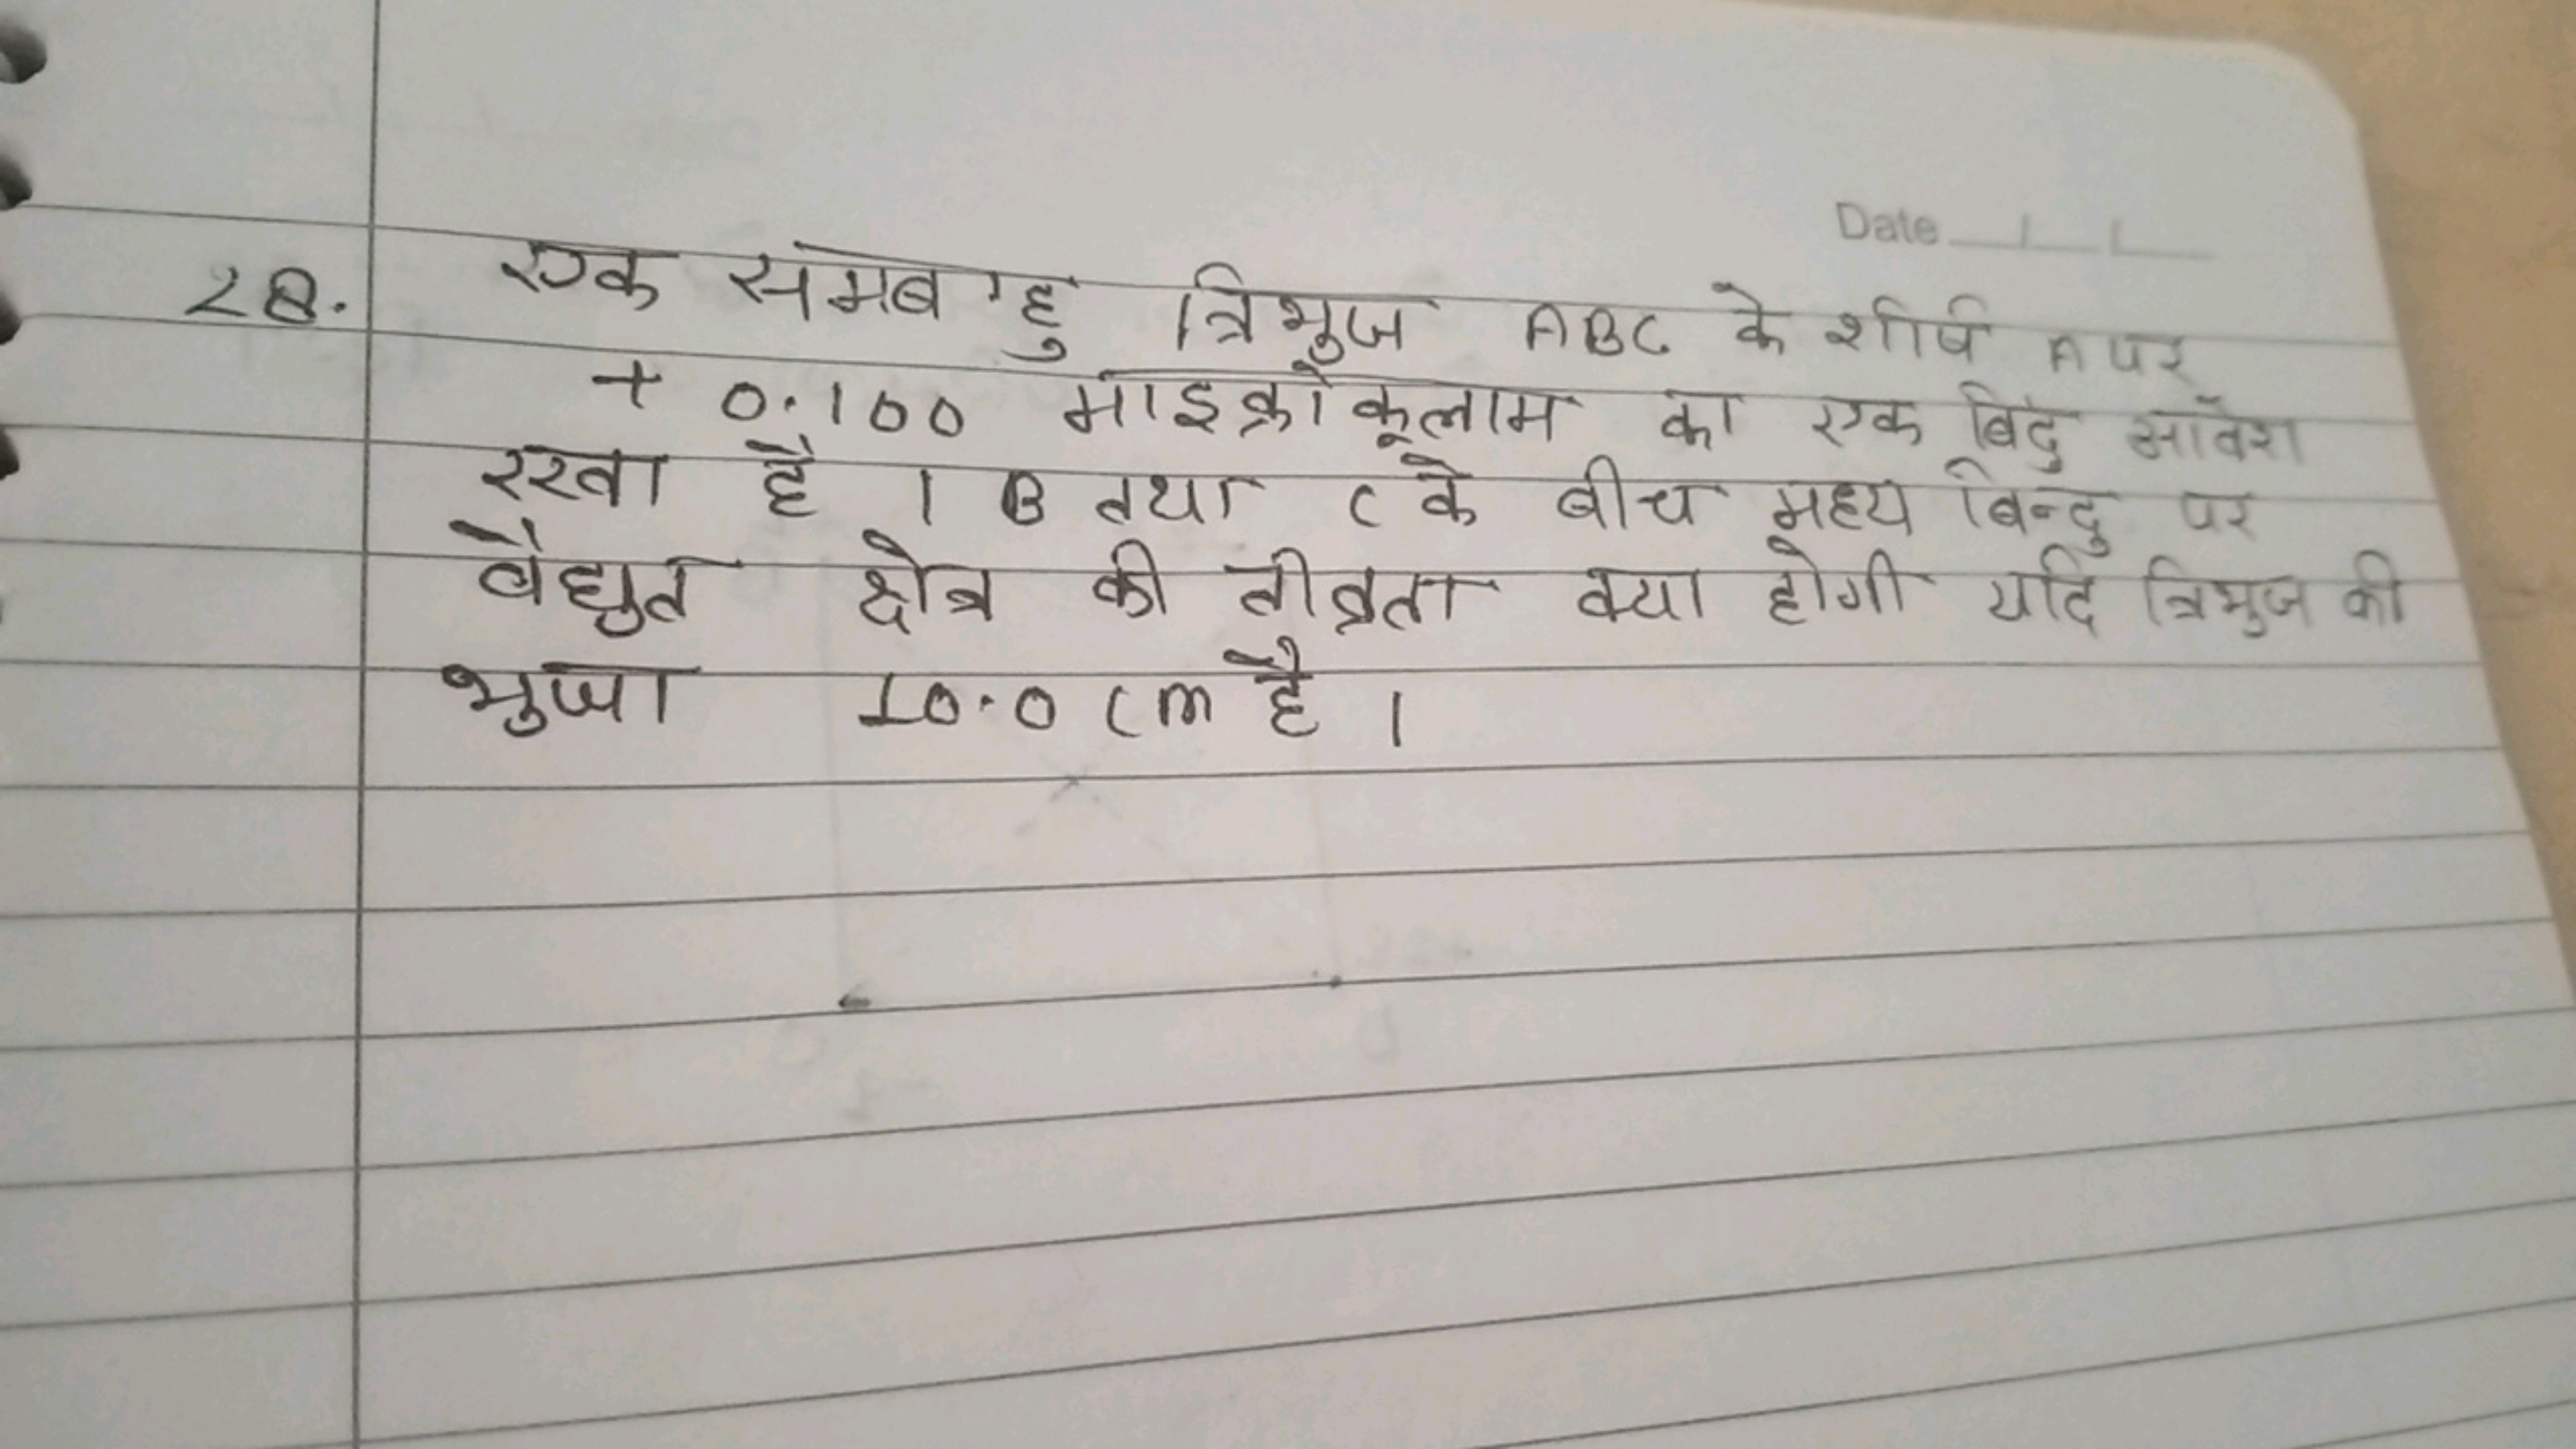 Date
2Q. एक समबाहु त्रिभुज ABC के शीर्ष A पर
+ 0.100 माइक्रोकूलाम का एक बिंदु आवेश
रखा है । B तथा C के बीच मध्य बिन्दु पर
वैद्युत क्षेत्र की तीव्रता क्या होगी यदि त्रिभुज की
भुजा 10.0 cm है ।